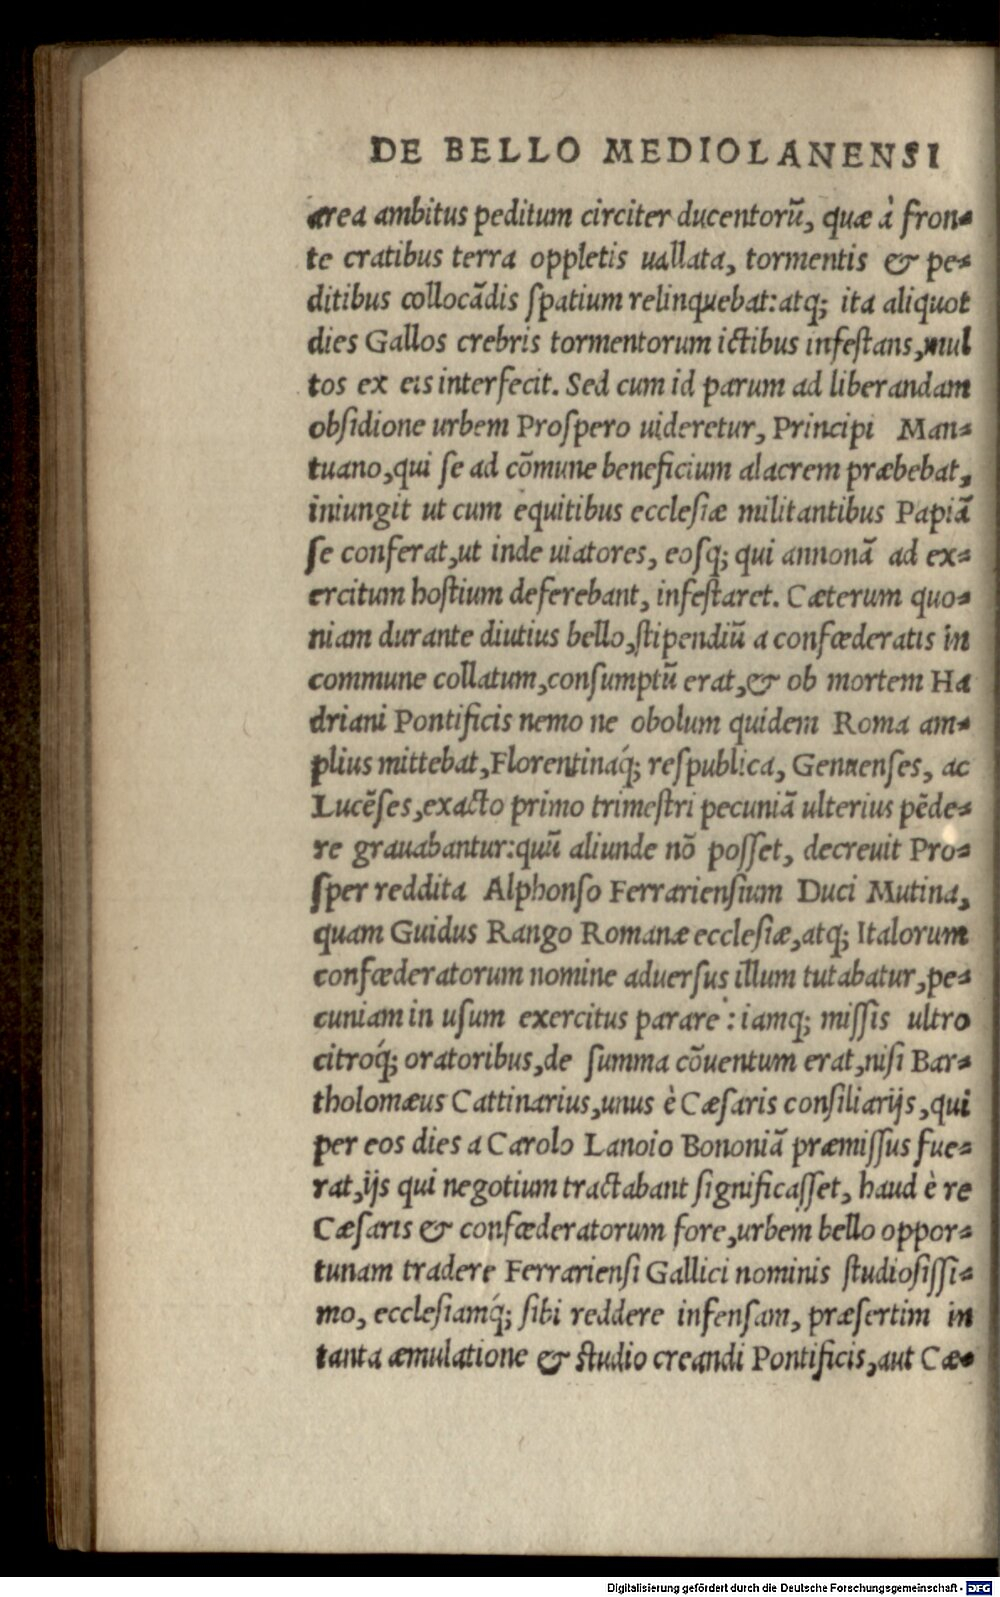 DE BELLO MEDIOLANENSI
area ambitus peditum circiter ducentorū, quæ à fron-
te cratibus terra oppletis uallata, tormentis & pe-
ditibus collocādis ſpatium relinquebat: atq; ita aliquot
dies Gallos crebris tormentorum ictibus infeſtans, mul
tos ex eis interfecit. Sed cum id parum ad liberandam
obſidione urbem Proſpero uideretur, Principi Man-
tuano, qui ſe ad cōmune beneficium alacrem præbebat,
iniungit ut cum equitibus eccleſiæ militantibus Papiā
ſe conferat, ut inde uiatores, eoſq; qui annonā ad ex-
ercitum hoſtium deferebant, infeſtaret. Cæterum quo-
niam durante diutius bello, ſtipendiū a confœderatis in
commune collatum, conſumptū erat, & ob mortem Ha
driani Pontificis nemo ne obolum quidem Roma am-
plius mittebat, Florentinaq́; reſpublica, Genuenſes, ac
Lucēſes, exacto primo trimeſtri pecuniā ulterius pēde-
re grauabantur: quū aliunde nō poſſet, decreuit Pro-
ſper reddita Alphonſo Ferrarienſium Duci Mutina,
quam Guidus Rango Romanæ eccleſiæ, atq; Italorum
confœderatorum nomine aduerſus illum tutabatur, pe-
cuniam in uſum exercitus parare : iamq; miſſis ultro
citroq́; oratoribus, de ſumma cōuentum erat, niſi Bar-
tholomæus Cattinarius, unus è Cæſaris conſiliarijs, qui
per eos dies a Carolo Lanoio Bononiā præmiſſus fue-
rat, ijs qui negotium tractabant ſignificaſſet, haud è re
Cæſaris & confœderatorum fore, urbem bello oppor-
tunam tradere Ferrarienſi Gallici nominis ſtudioſiſſi-
mo, eccleſiamq́; ſibi reddere infenſam, præſertim in
tanta æmulatione & ſtudio creandi Pontificis, aut Cæ-
Digitalisierung gefördert durch die Deutsche Forschungsgemeinschaft - DFG